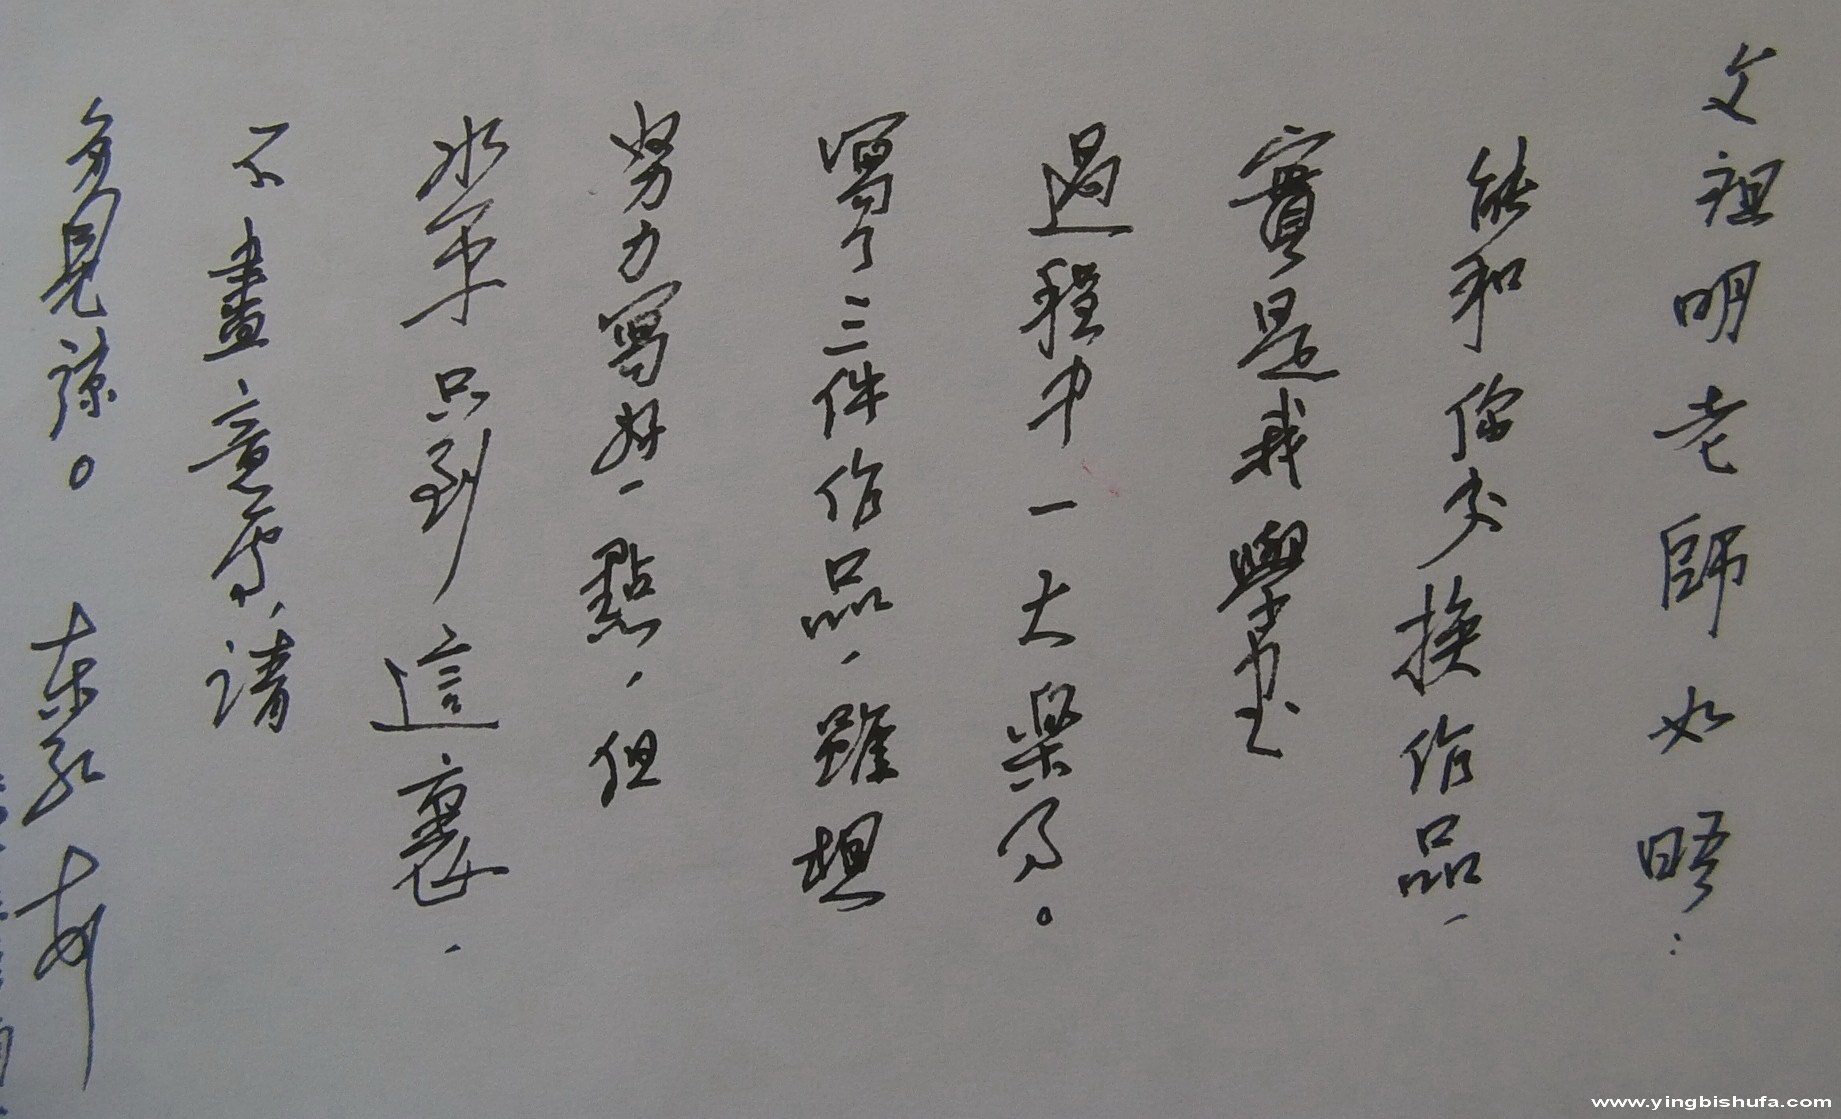 文祖明老師如晤:
能和你交換作品,
實是我學书
過程中一大樂事。
寫了三件作品,雖想
努力寫好一點,但
水平只到這裏,
不盡意處,請
多見諒。
www.yingbishufa.com